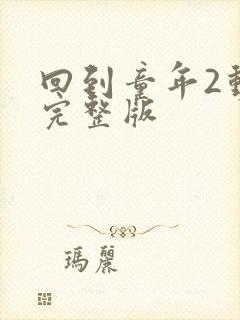 回到童年2
完整版
瑪麗